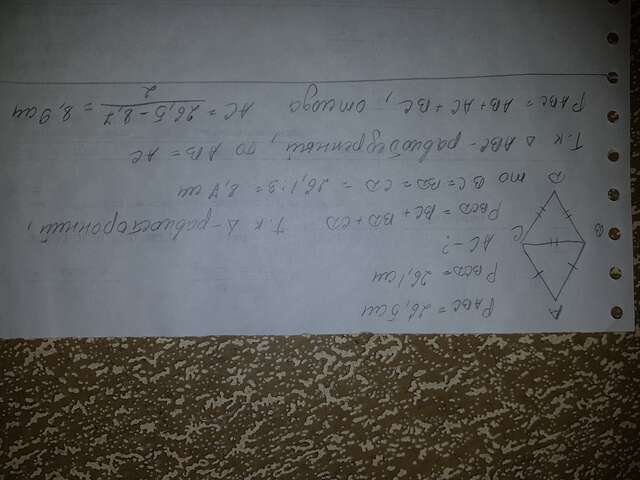 A
B
C
D
P ABC = 26,5 см
P BCD = 26,1 см
AC - ?
P BCD = BC + BD + CD т.к Δ-равносторонний,
то BC = BD = CD = 26,1:3 = 8,7 см
Т.к Δ ABC - равнобедренный, то AB = AC
P ABC = AB + AC + BC, отсюда AC = 26,5 - 8,7 / 2 = 8,9 см